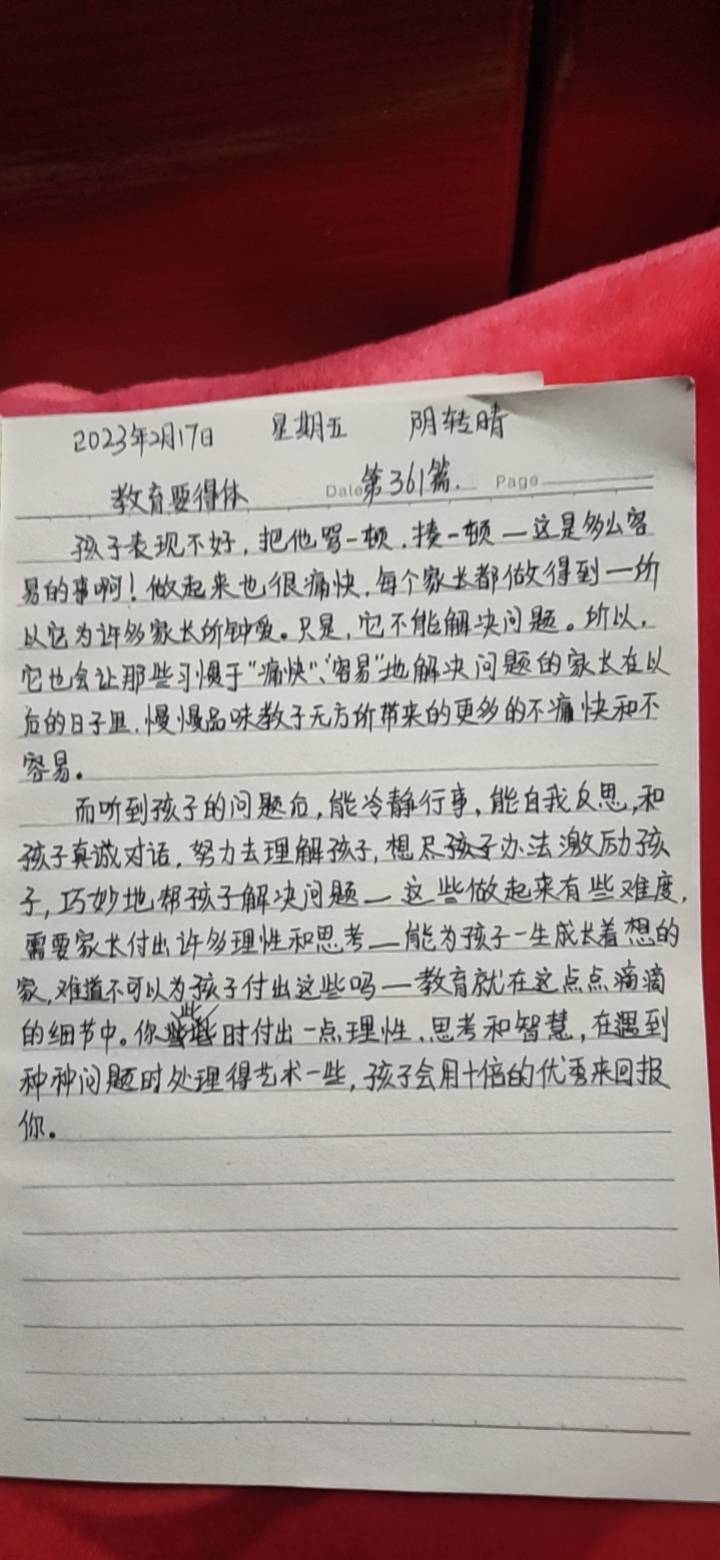 2023年2月17日 星期五 阴转晴
教育要得体 Date 第361篇. Page
孩子表现不好，把他骂一顿、揍一顿—这是多么容
易的事啊！做起来也很痛快，每个家长都做得到—所
以它为许多家长所钟爱。只是，它不能解决问题。所以，
它也会让那些习惯于“痛快”、“容易”地解决问题的家长在以
后的日子里，慢慢品味教子无方所带来的更多的不痛快和不
容易。
而听到孩子的问题后，能冷静行事，能自我反思，和
孩子真诚对话，努力去理解孩子，想尽孩子办法激励孩
子，巧妙地帮孩子解决问题—这些做起来有些难度，
需要家长付出许多理性和思考—能为孩子一生成长着想的
家，难道不可以为孩子付出这些吗—教育就在这点点滴滴
的细节中。你些时付出一点理性、思考和智慧，在遇到
种种问题时处理得艺术一些，孩子会用十倍的优秀来回报
你。